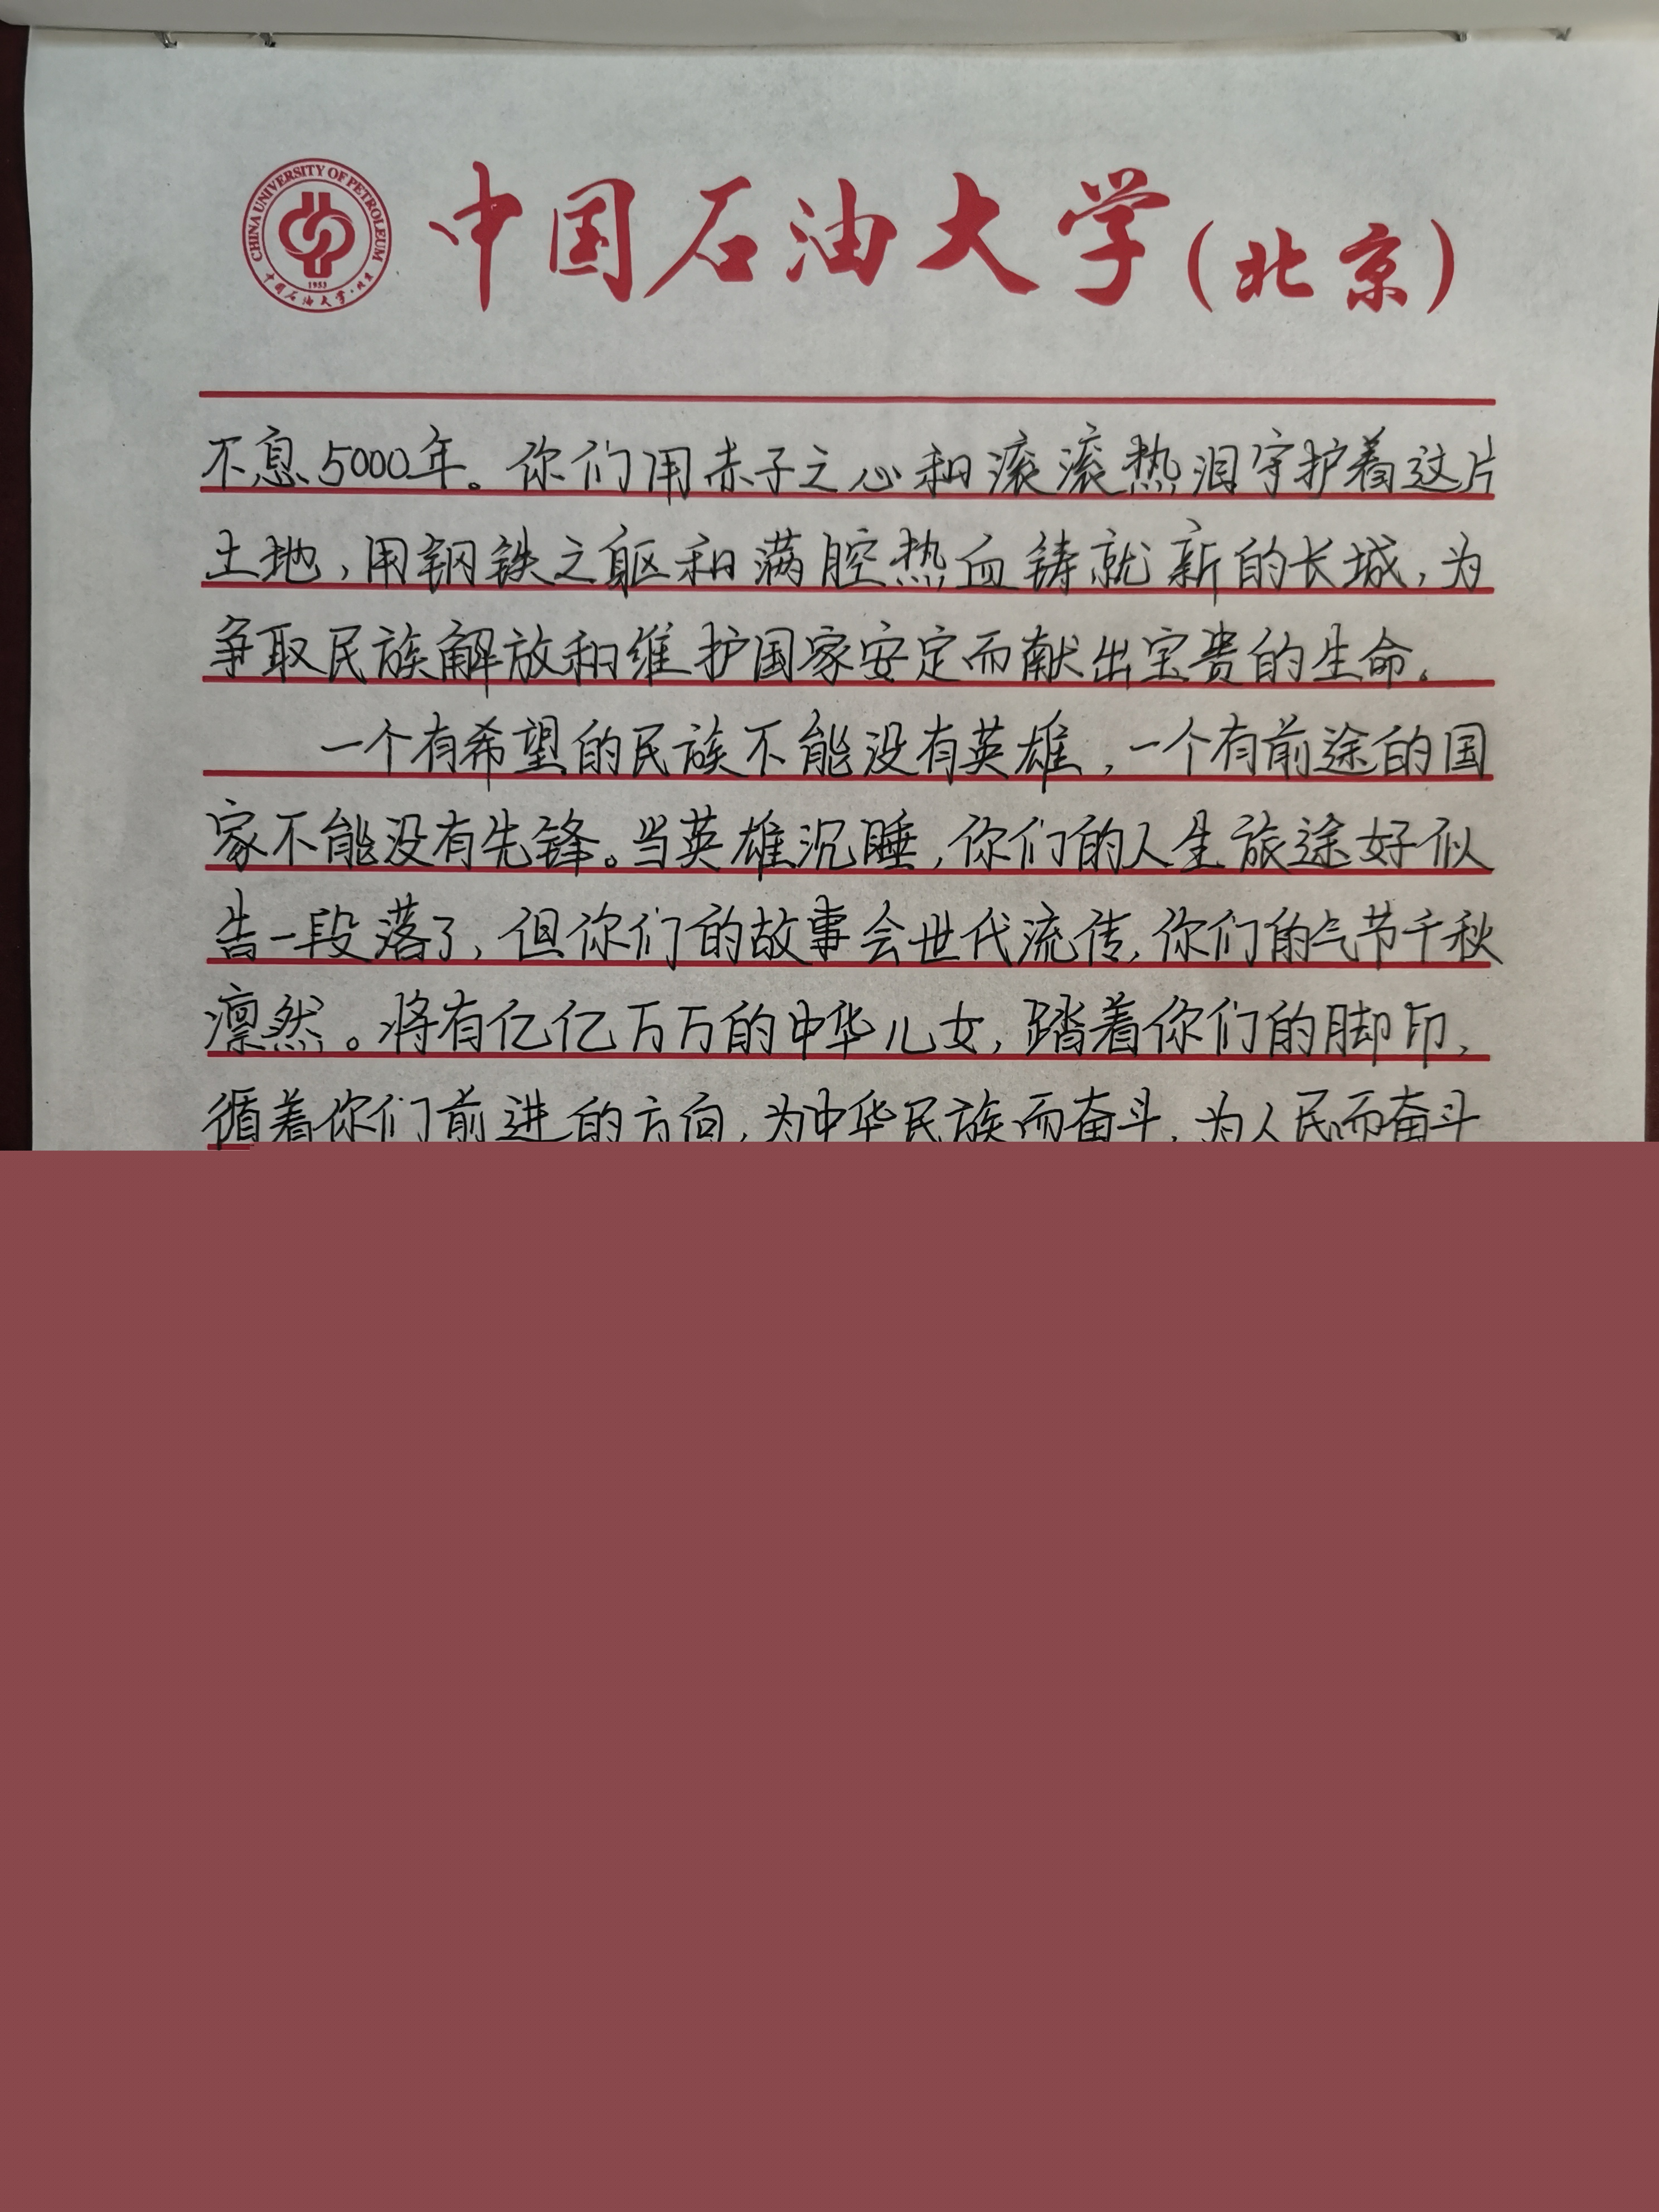 CHINA UNIVERSITY OF PETROLEUM
1953
中国石油大学·北京
中国石油大学(北京)
不息5000年。你们用赤子之心和滚滚热泪守护着这片
土地,用钢铁之躯和满腔热血铸就新的长城,为
争取民族解放和维护国家安定而献出宝贵的生命。
一个有希望的民族不能没有英雄,一个有前途的国
家不能没有先锋。当英雄沉睡,你们的人生旅途好似
告一段落了,但你们的故事会世代流传,你们的气节千秋
凛然。将有亿亿万万的中华儿女,踏着你们的脚印,
循着你们前进的方向,为中华民族而奋斗,为人民而奋斗